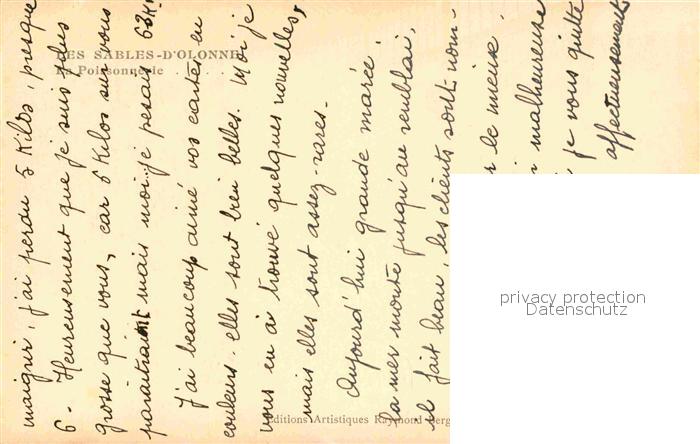 LES SABLES-D'OLONNE
La Poissonnerie
maigrir, j'ai perdu 5 Kilos, presque
6 - Heureusement que je suis plus
grosse que vous, car 6 Kilos sur vous
paraîtraient mais moi je pesais 63K
J'ai beaucoup aimé vos cartes en
couleurs. elles sont bien belles. Moi je
vous en ai trouvé quelques nouvelles,
mais elles sont assez rares.
Aujourd'hui grande marée,
la mer monte jusqu'au remblai,
il fait beau, les clients sont nom-
le mieux.
malheureuse
je vous quitte
affectueusement
Editions Artistiques Raymond Berg
privacy protection
Datenschutz